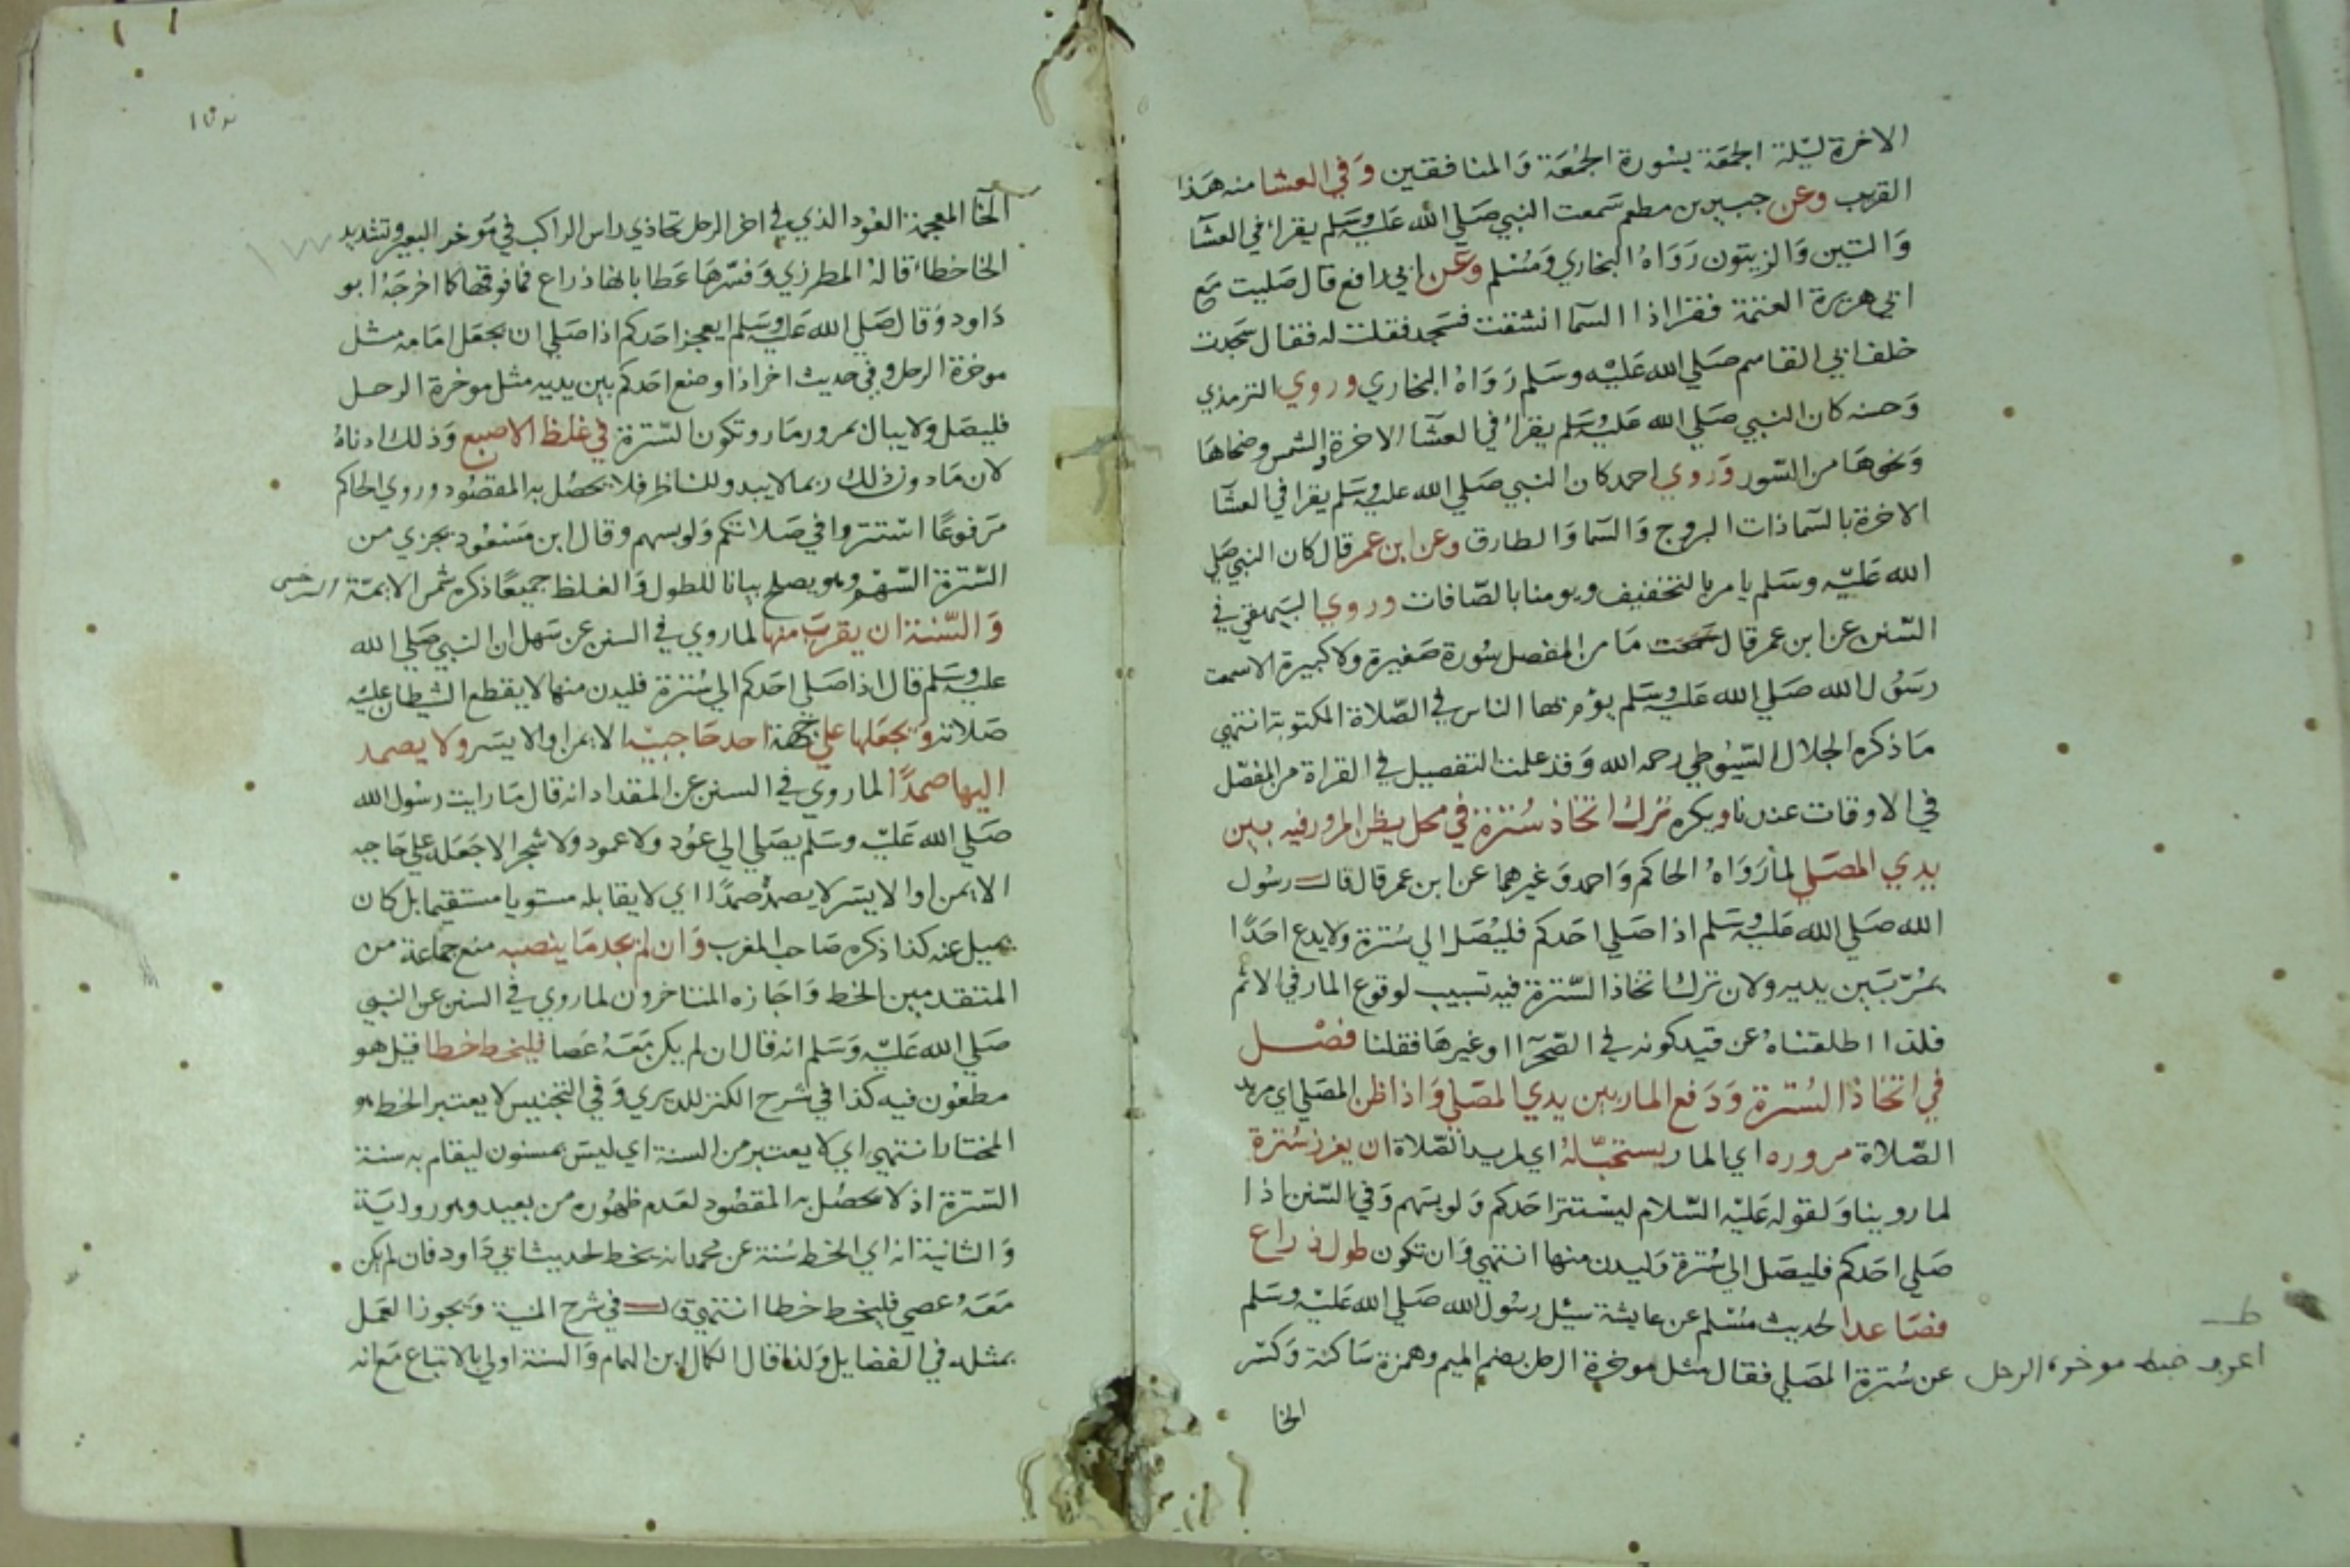 الاخرة ليلة الجمعة بسورة الجمعة والمنافقين وفي العشا منه هذا
القرب وعن جبير بن مطعم سمعت النبي صلي الله عليه وسلم يقرا في العشآ
والتين والزيتون رواه البخاري ومسلم وعن ابي رافع قال صليت مع
ابي هريرة العتمة فقرا اذا السمآ انشقت فسجد فقلت له فقال سجدت
خلف ابي القاسم صلي الله عليه وسلم رواه البخاري وروي الترمذي
وحسنه كان النبي صلي الله عليه وسلم يقرا في العشآ الاخرة بالشمس وضحاها
ونحوها من السور وروي احمد كان النبي صلي الله عليه وسلم يقرا في العشآ
الاخرة بالسما ذات البروج والسما والطارق وعن ابن عمر قال كان النبي صلي
الله عليه وسلم يامر بالتخفيف ويومنا بالصافات وروي البيهقي في
السنن عن ابن عمر قال ما من المفصل سورة صغيرة ولا كبيرة الا سمعت
رسول الله صلي الله عليه وسلم يؤم بها الناس في الصلاة المكتوبة انتهي
ما ذكره الجلال السيوطي رحمه الله وقد علمت التفصيل في القراة من المفصل
في الاوقات عندنا ويكره ترك اتخاذ سترة في محل يظن المرور فيه بين
يدي المصلي لما رواه الحاكم واحمد وغيرهما عن ابن عمر قال قال رسول
الله صلي الله عليه وسلم اذا صلي احدكم فليصل الي سترة ولا يدع احدا
يمر بين يديه ولان ترك اتخاذ السترة فيه تسبيب لوقوع المار في الاثم
فلذا اطلقناه عن قيد كونه في الصحرآ او غيرها فقلنا فصل
في اتخاذ السترة ودفع المار بين يدي المصلي واذا ظن المصلي اي مريد
الصلاة مروره اي المار يستحب له اي لمريد الصلاة ان يغرز سترة
لما روينا ولقوله عليه السلام ليستتر احدكم ولو بسهم وفي السنن اذا
صلي احدكم فليصل الي سترة وليدن منها انتهي وان تكون طول ذراع
فصاعدا لحديث مسلم عن عايشة سيل رسول الله صلي الله عليه وسلم
عن سترة المصلي فقال مثل موخرة الرحل بضم الميم وهمزة ساكنة وكسر
ضبط موخرة الرحل
الخا
الخا المعجمة العود الذي في اخر الرحل تحاذي راس الراكب في موخر البعير وتشديد
الخا خطا قاله المطرزي وفسرها عطا بانها ذراع فما فوقها كما اخرجه ابو
داود وقال صلي الله عليه وسلم ايعجز احدكم اذا صلي ان يجعل امامه مثل
موخرة الرحل وفي حديث اخر اذا وضع احدكم بين يديه مثل موخرة الرحل
فليصل ولا يبال بمرور مار وتكون السترة في غلظ الاصبع وذلك ادناه
لان ما دون ذلك ربما لا يبدو للناظر فلا يحصل به المقصود وروي الحاكم
مرفوعا استتروا في صلاتكم ولو بسهم وقال ابن مسعود يجزي من
السترة السهم وهو يصلح بيانا للطول والغلظ جميعا ذكره شمس الايمة السرخسي
والسنة ان يقرب منها لما روي في السنن عن سهل ان النبي صلي الله
عليه وسلم قال اذا صلي احدكم الي سترة فليدن منها لا يقطع الشيطان عليه
صلاته ويجعلها علي جهة احد حاجبيه الايمن او الايسر ولا يصمد
اليها صمدا لما روي في السنن عن المقداد انه قال ما رايت رسول الله
صلي الله عليه وسلم يصلي الي عود ولا عمود ولا شجر الا جعله علي حاجبه
الايمن او الايسر لا يصمد صمدا اي لا يقابله مستويا مستقيما بل كان
يميل عنه كذا ذكره صاحب المغرب وان لم يجد ما ينصبه منع جماعة من
المتقدمين الخط واجازه المتاخرون لما روي في السنن عن النبي
صلي الله عليه وسلم انه قال ان لم يكن معه عصا فليخط خطا قيل هو
مطعون فيه كذا في شرح الكنز للديري وفي التجنيس لا يعتبر الخط هو
المختار انتهي اي لا يعتبر من السنة اي ليس بمسنون ليقام به سنة
السترة اذ لا يحصل به المقصود لعدم ظهوره من بعيد وهو رواية
والثانية انه اي الخط سنة عن محمد انه يخط لحديث ابي داود فان لم يكن
معه عصي فليخط خطا انتهي قال في شرح المنية ويجوز العمل
بمثله في الفضايل ولذا قال الكمال ابن الهمام والسنة اولي بالاتباع مع انه